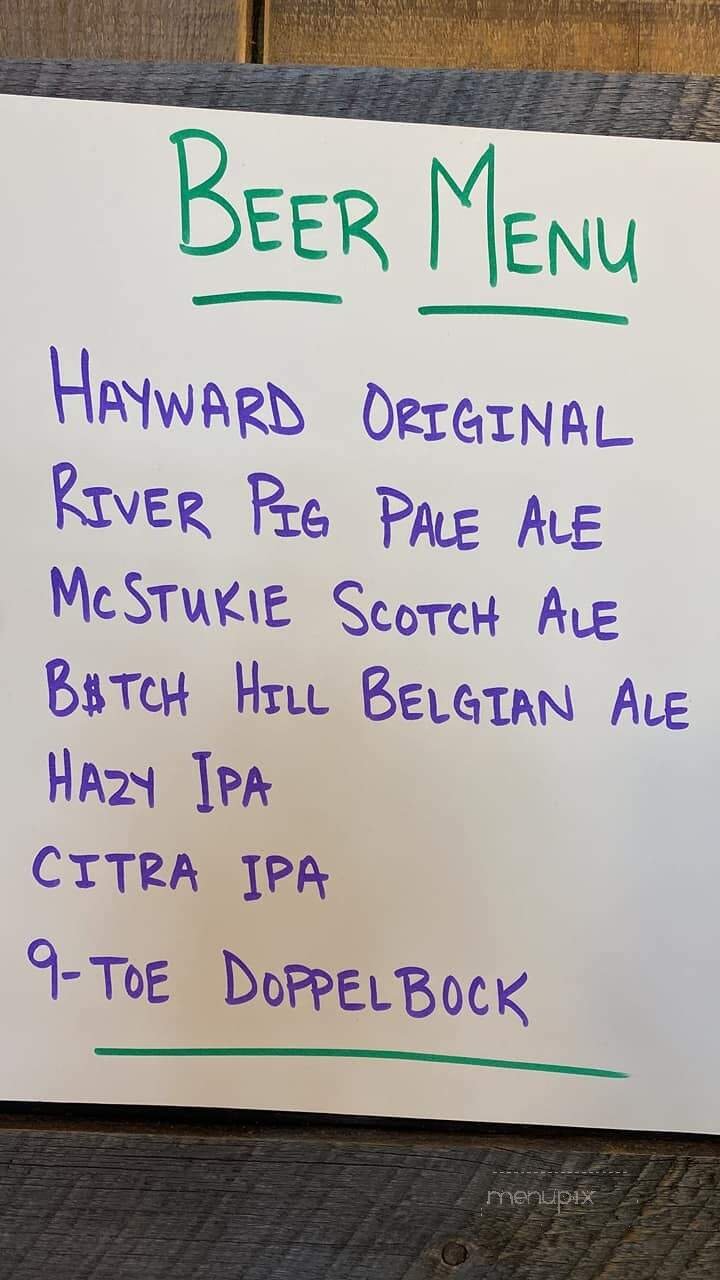 BEER MENU
HAYWARD ORIGINAL
RIVER PIG PALE ALE
MCSTUKIE SCOTCH ALE
B$TCH HILL BELGIAN ALE
HAZY IPA
CITRA IPA
9-TOE DOPPELBOCK
menupix